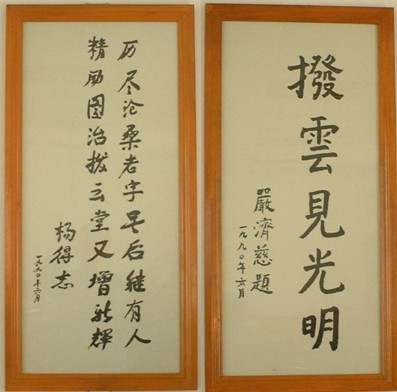 历尽沧桑老字号后继有人
精励图治拨云堂又增新辉
杨得志
一九九〇年六月
撥雲見光明
嚴濟慈題
一九九〇年六月